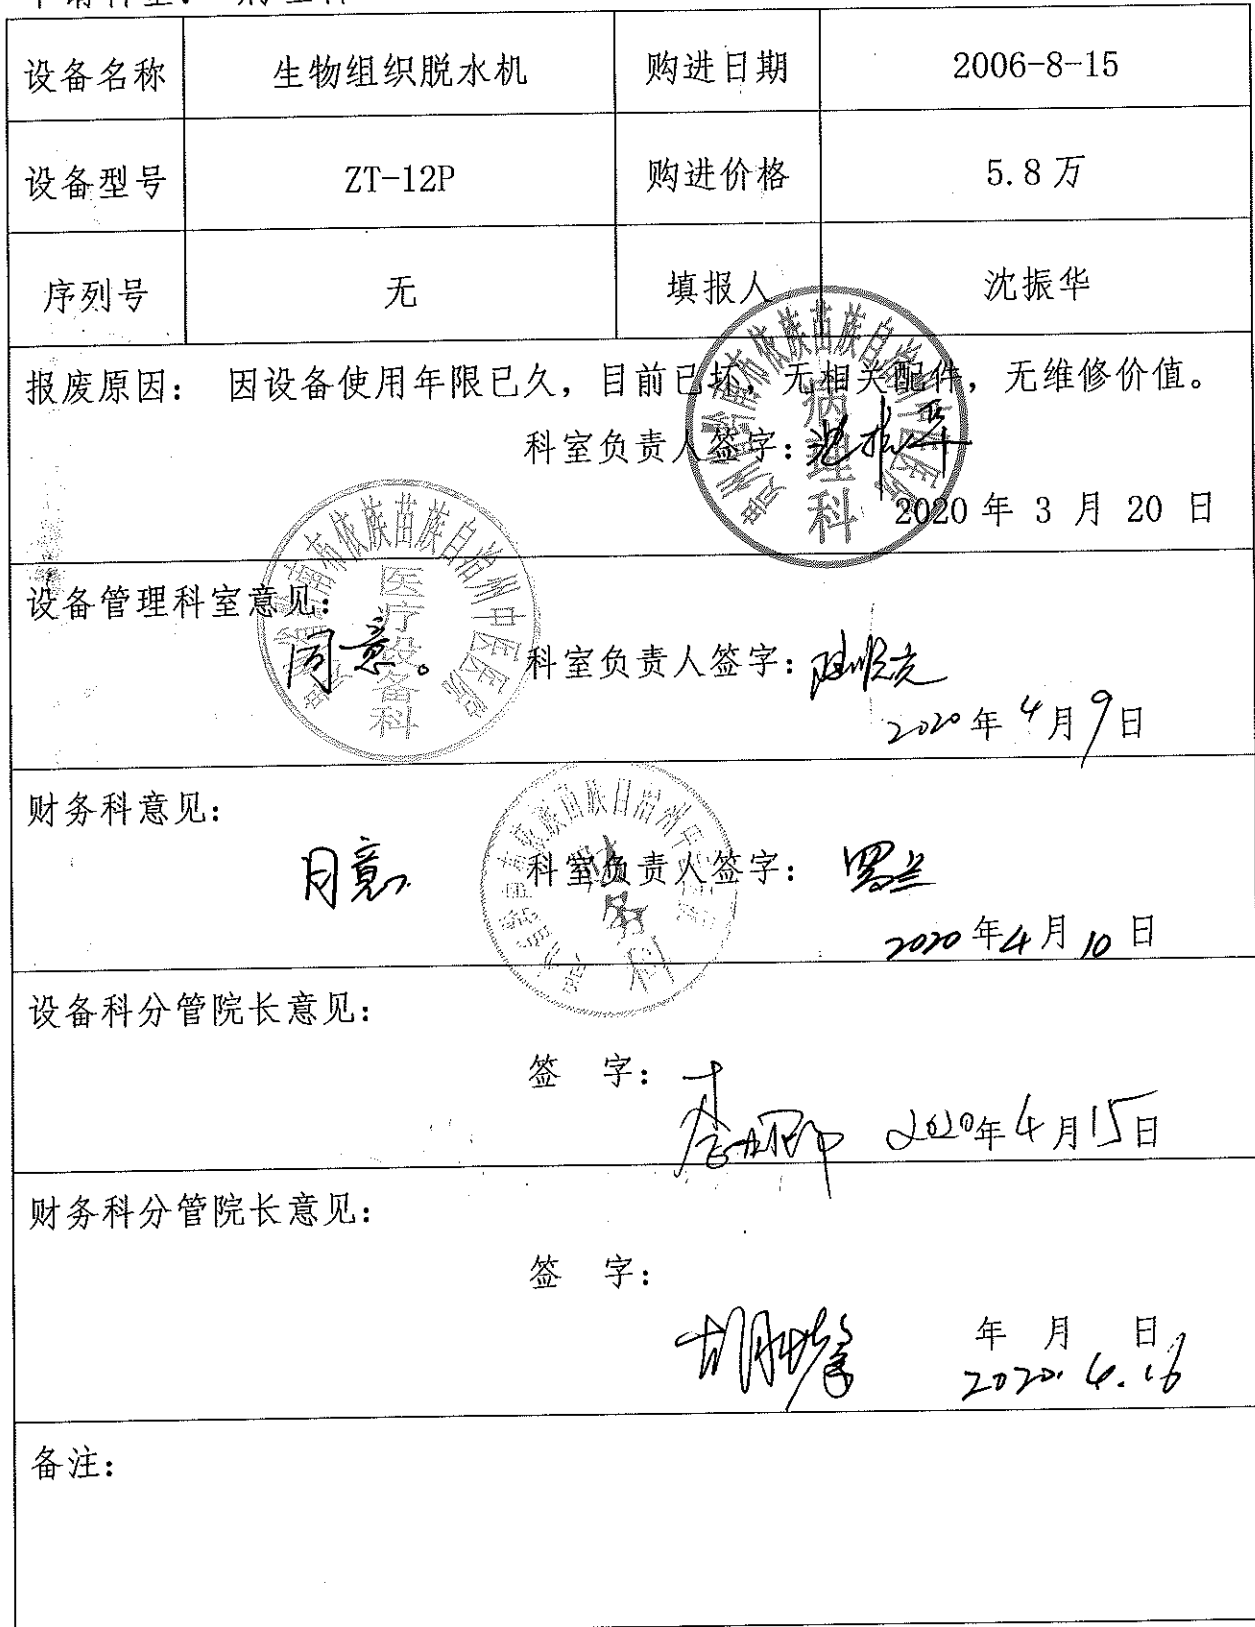 设备名称 生物组织脱水机 购进日期 2006-8-15
设备型号 ZT-12P 购进价格 5.8万
序列号 无 填报人 沈振华
报废原因： 因设备使用年限已久，目前已坏，无相关配件，无维修价值。
科室负责人签字：沈振华
2020年 3 月 20 日
病理科
设备管理科室意见：
同意。 科室负责人签字：
2020年4月9日
布依族苗族自治州中医医院
医疗设备科
财务科意见：
同意 科室负责人签字： 罗兰
2020年4月10日
财务科
设备科分管院长意见：
签 字：
2020年4月15日
财务科分管院长意见：
签 字：
年 月 日
2020.4.16
备注：